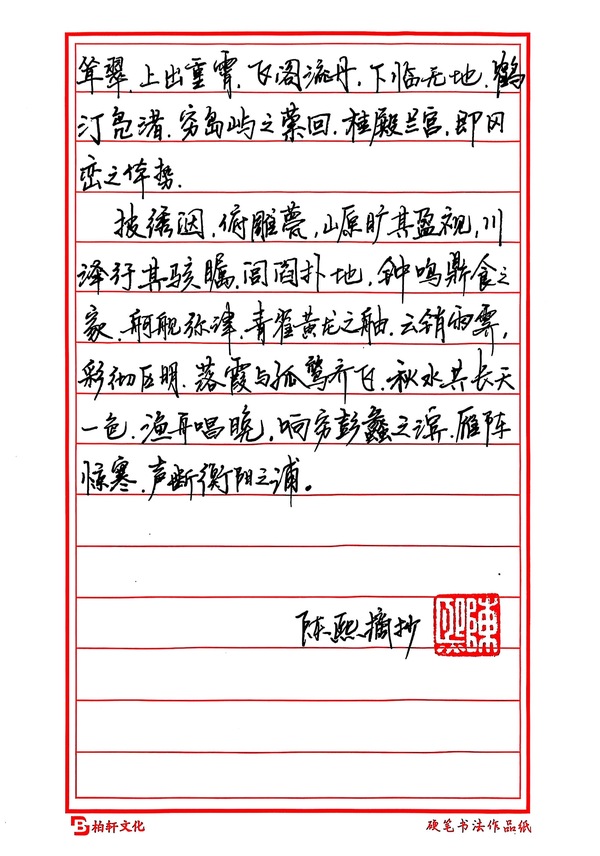 耸翠.上出重霄,飞阁流丹,下临无地.鹤
汀凫渚.穷岛屿之萦回.桂殿兰宫,即冈
峦之体势.
披绣闼,俯雕甍,山原旷其盈视,川
泽纡其骇瞩,闾阎扑地,钟鸣鼎食之
家.舸舰弥津,青雀黄龙之舳.云销雨霁,
彩彻区明.落霞与孤鹜齐飞.秋水共长天
一色.渔舟唱晚,响穷彭蠡之滨.雁阵
惊寒.声断衡阳之浦。
陈熙摘抄
陳熙
柏轩文化 硬笔书法作品纸